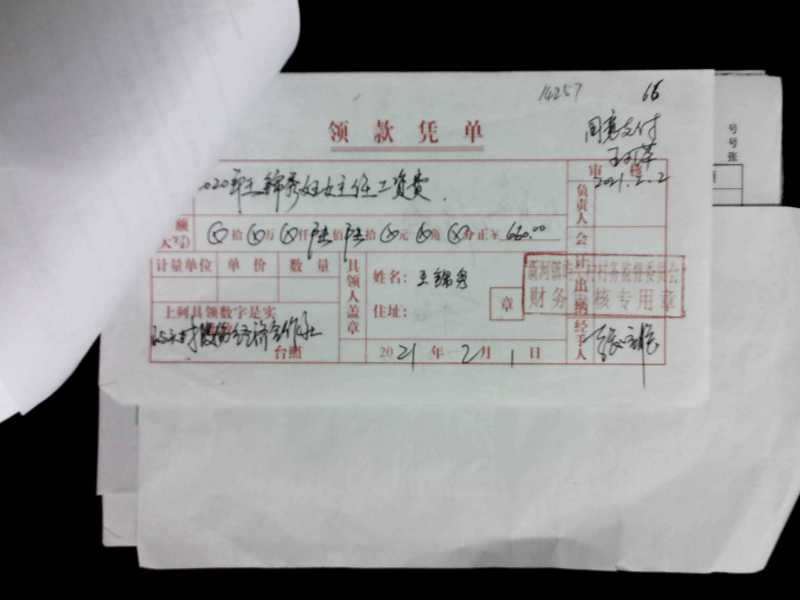 14257
66
领款凭单
同意支付
2020年王锦秀妇女主任工资费
审核
2021.2.2
额
大写
⊗拾⊗万⊗仟陆佰陆拾⊗元⊗角⊗分正¥ 660.00
负责人
计量单位 单价 数量
具领人盖章
姓名：王锦秀
住址：
章
会计
出纳
经手人
村务监督委员会
财务审核专用章
上列具领数字是实
村股份经济合作社
台照
2021年2月1日
号
号
张